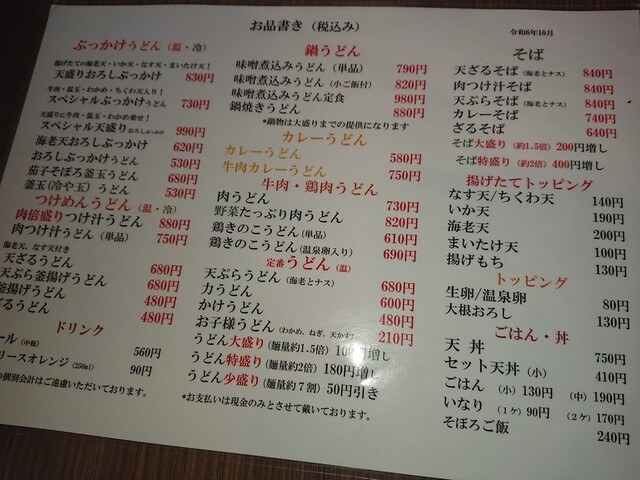 お品書き（税込み）
令和6年10月
ぶっかけうどん（温・冷）
揚げたての海老天・いか天・なす天・まいたけ天！
天盛りおろしぶっかけ 830円
牛肉・温玉・わかめ・ちくわ天入り！
スペシャルぶっかけうどん 730円
天盛りに牛肉・温玉・わかめ乗せ！
スペシャル天盛りおろしぶっかけ 990円
海老天おろしぶっかけ 620円
おろしぶっかけうどん 530円
茄子そぼろ釜玉うどん 680円
釜玉（冷や玉）うどん 530円
つけめんうどん（温・冷）
肉倍盛りつけ汁うどん 880円
肉つけ汁うどん（単品） 750円
海老天、なす天付き
天ざるうどん 680円
天ぷら釜揚げうどん 680円
釜揚げうどん 480円
ざるうどん 480円
ドリンク
ール（中瓶） 560円
リースオレンジ（250ml） 90円
の個別会計はご遠慮いただいております。
鍋うどん
味噌煮込みうどん（単品） 790円
味噌煮込みうどん（小ご飯付） 820円
味噌煮込みうどん定食 980円
鍋焼きうどん 880円
*鍋物は大盛りまでの提供になります
カレーうどん
カレーうどん 580円
牛肉カレーうどん 750円
牛肉・鶏肉うどん
肉うどん 730円
野菜たっぷり肉うどん 820円
鶏きのこうどん（単品） 610円
鶏きのこうどん（温泉卵入り） 690円
定番うどん（温）
天ぷらうどん（海老とナス） 680円
力うどん 600円
かけうどん 480円
お子様うどん（わかめ、ねぎ、天かす） 210円
うどん大盛り（麺量約1.5倍） 100円増し
うどん特盛り（麺量約2倍） 180円増し
うどん少盛り（麺量約７割） 50円引き
*お支払いは現金のみとさせて戴いております。
そば
天ざるそば（海老とナス） 840円
肉つけ汁そば 840円
天ぷらそば（海老とナス） 840円
カレーそば 740円
ざるそば 640円
そば大盛り（約1.5倍）200円増し
そば特盛り（約2倍）400円増し
揚げたてトッピング
なす天/ちくわ天 140円
いか天 190円
海老天 200円
まいたけ天 100円
揚げもち 130円
トッピング
生卵/温泉卵 80円
大根おろし 130円
ごはん・丼
天 丼 750円
セット天丼（小） 410円
ごはん （小）130円 （中）190円
いなり （1ケ）90円 （2ケ）170円
そぼろご飯 240円